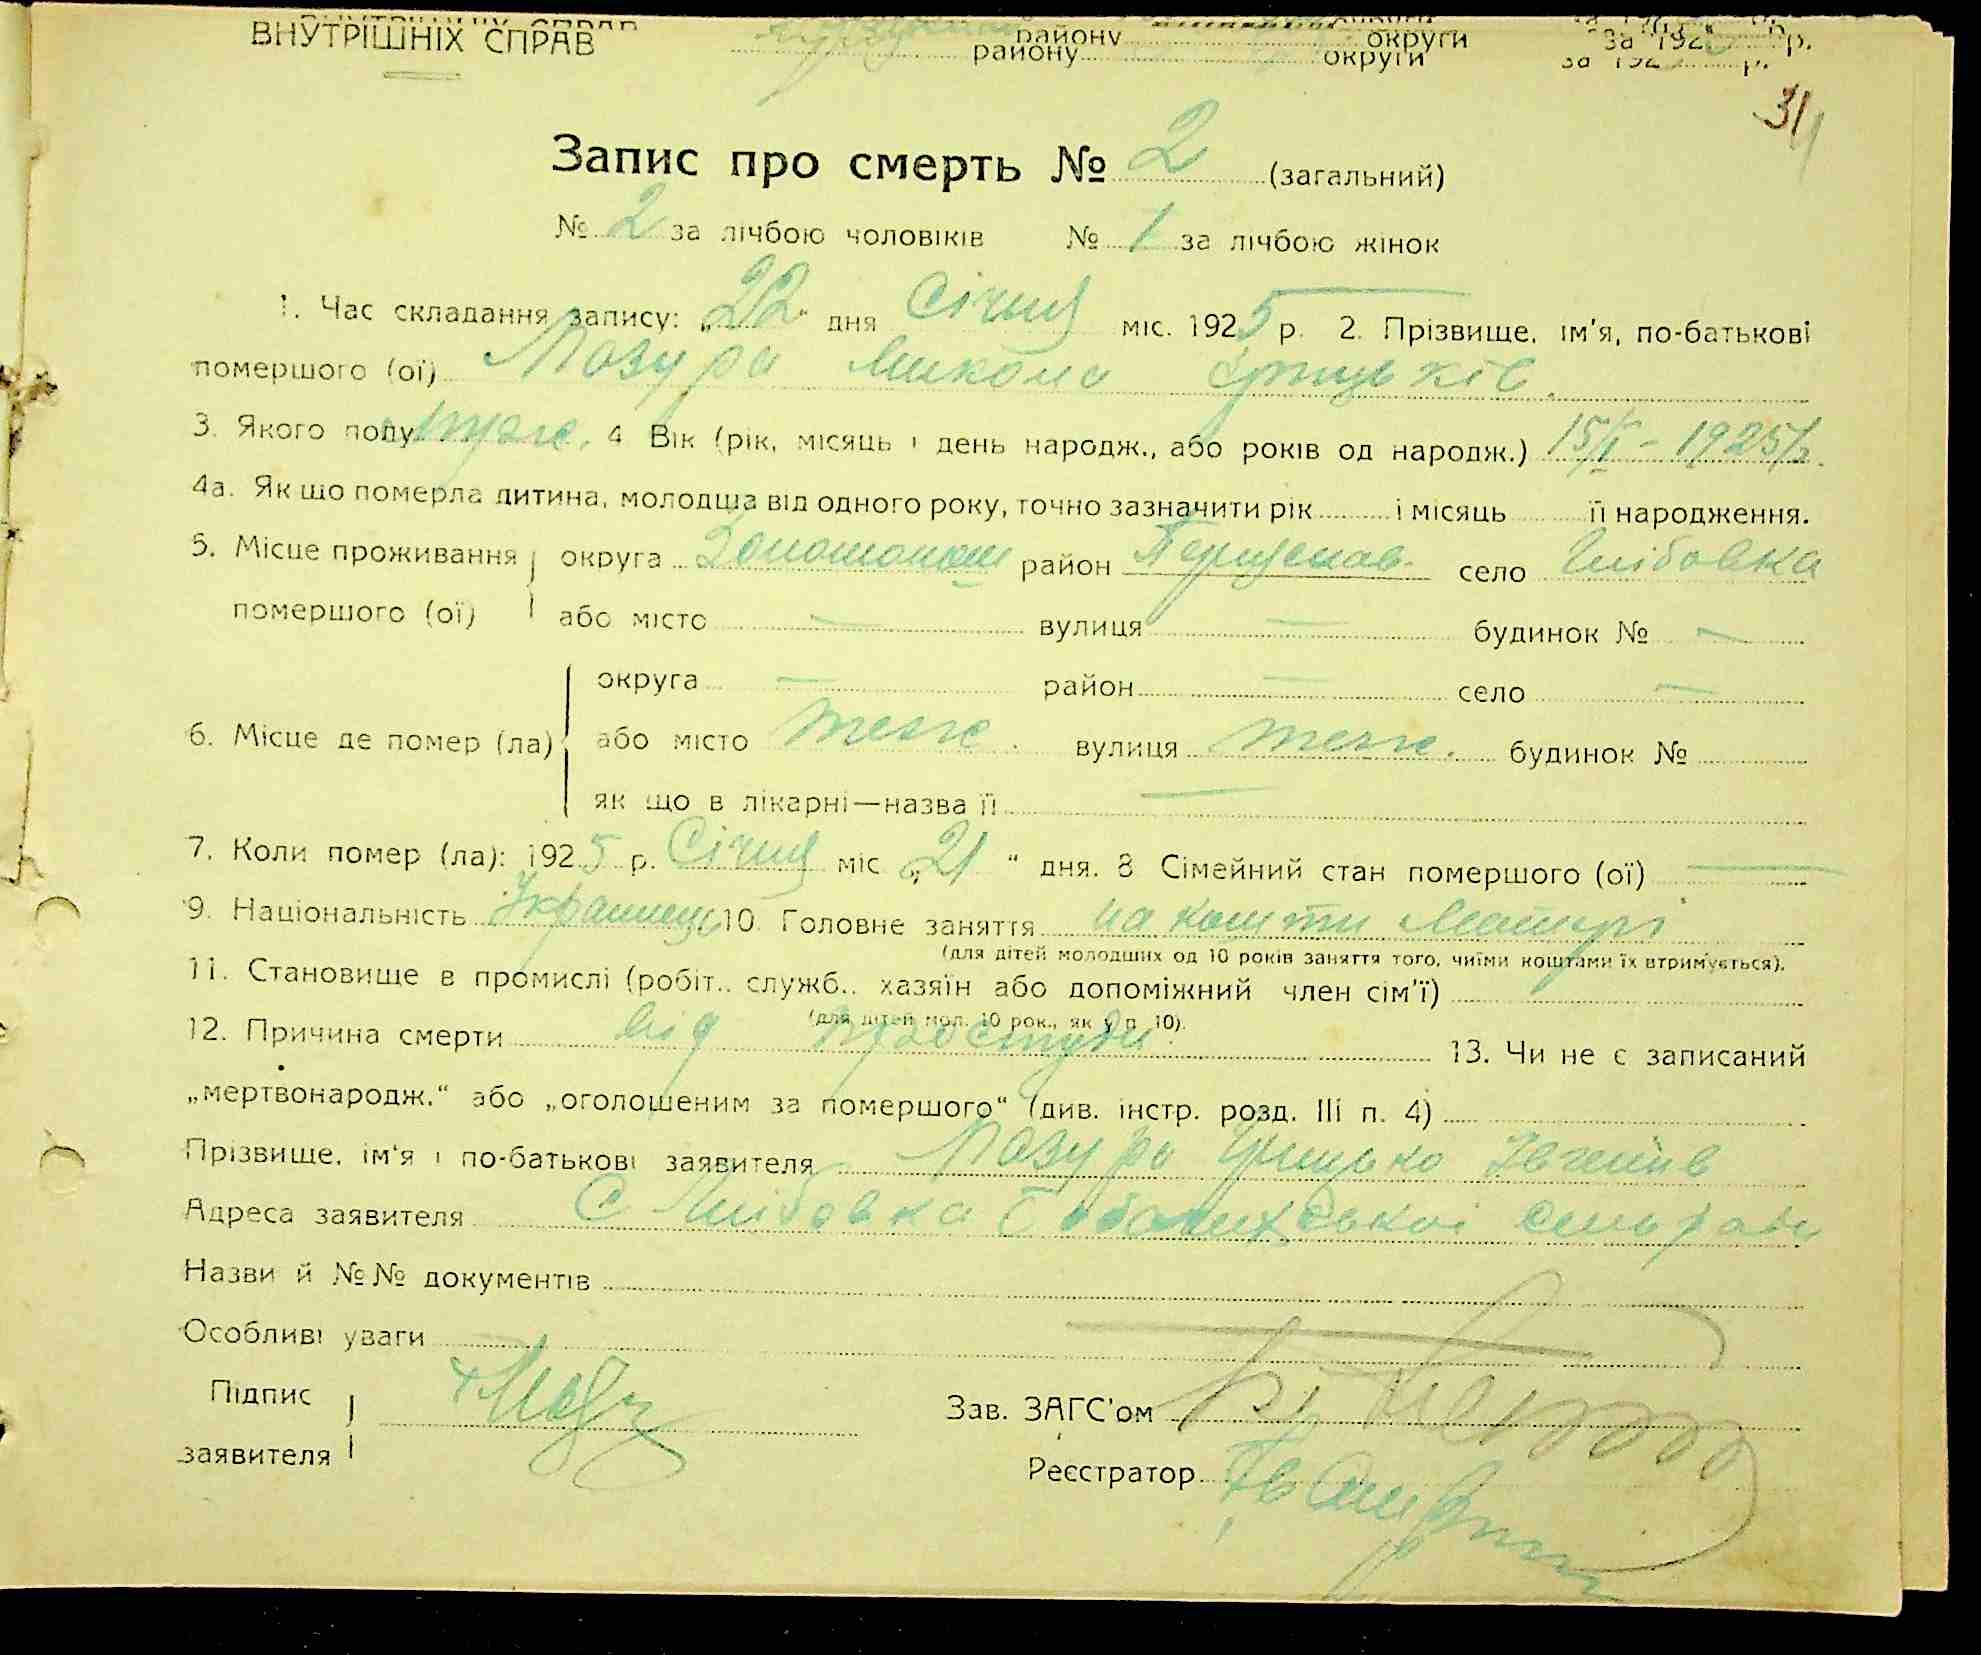 ВНУТРІШНІХ СПРАВ району округи за 192 р.
району округи за 192 р.
31
Запис про смерть № 2 (загальний)
№ 2 за лічбою чоловіків № 1 за лічбою жінок
1. Час складання запису: „22“ дня Січня міс. 1925 р. 2. Прізвище, ім'я, по-батькові
помершого (ої) Мазура Микола Грицьків
3. Якого полу муж. 4 Вік (рік, місяць і день народж., або років од народж.) 15/I - 1925 р.
4а. Як що померла дитина, молодша від одного року, точно зазначити рік і місяць її народження.
5. Місце проживання округа Золотонош район Переяслав. село Глібовка
помершого (ої) або місто — вулиця — будинок № —
округа — район — село —
6. Місце де помер (ла) або місто теж. вулиця теж. будинок №
як що в лікарні—назва її —
7. Коли помер (ла): 1925 р. Січня міс „21“ дня. 8 Сімейний стан помершого (ої) —
9. Національність Украинец 10. Головне заняття на кошти Матері
(для дітей молодших од 10 років заняття того, чиїми коштами їх втримується).
11. Становище в промислі (робіт.. служб.. хазяїн або допоміжний член сім'ї)
(для дітей мол. 10 рок., як у п. 10).
12. Причина смерти від простуди. 13. Чи не є записаний
„мертвонародж.“ або „оголошеним за помершого“ (див. інстр. розд. III п. 4)
Прізвище, ім'я і по-батькові заявителя Мазура Грицько
Адреса заявителя С Глібовка сельради
Назви й №№ документів
Особливі уваги
Підпис
заявителя
Зав. ЗАГС'ом
Реєстратор